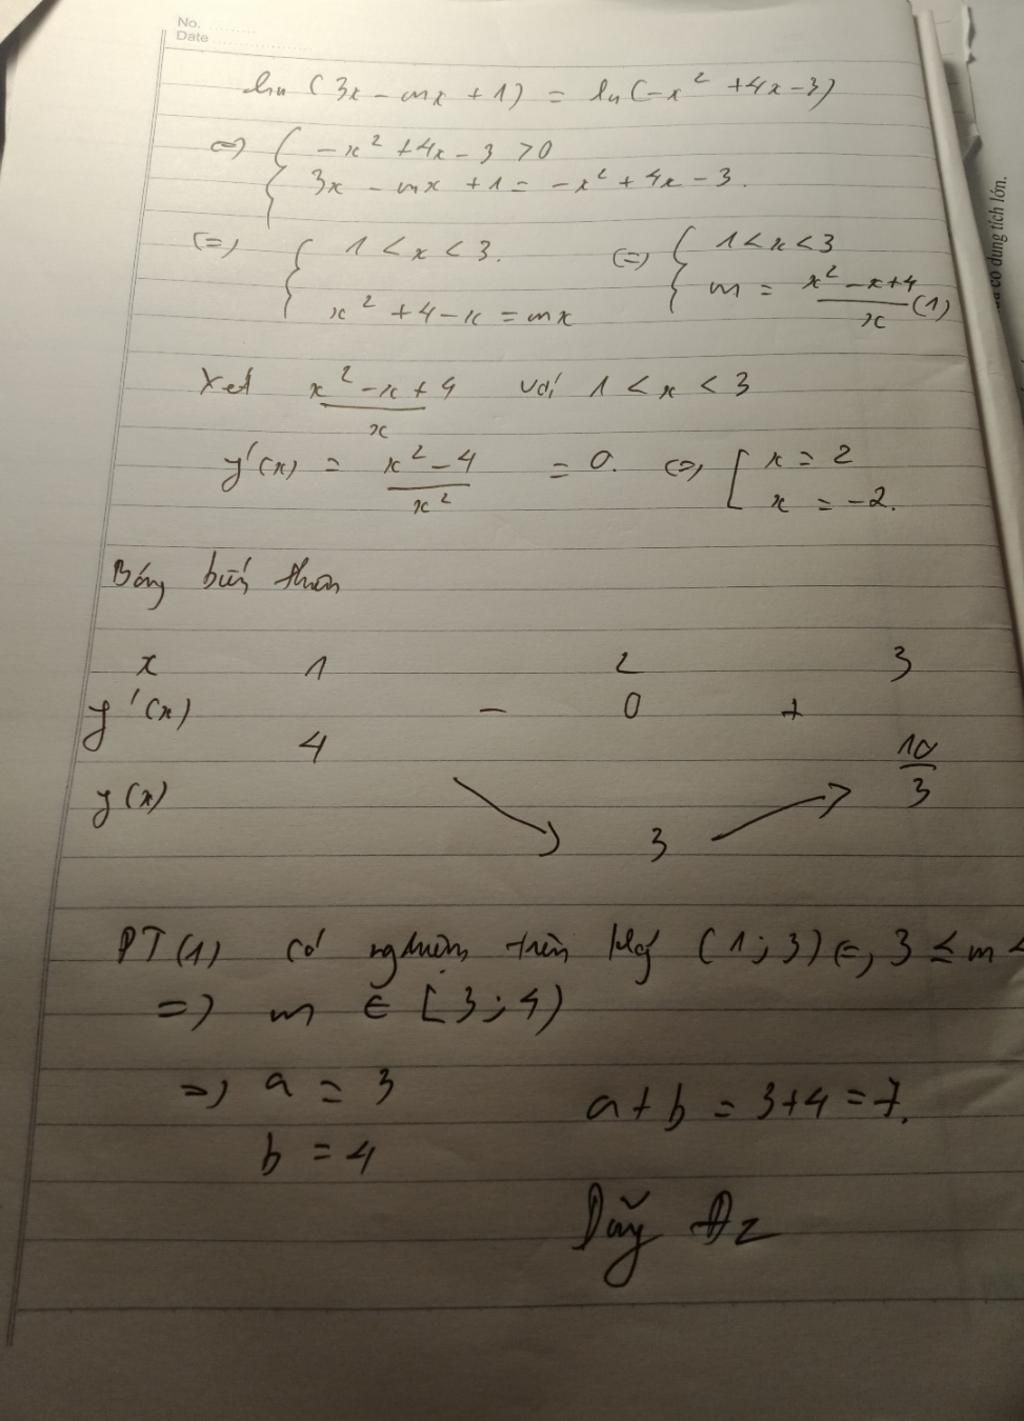 No.
Date
ln (3x - mx + 1) = ln(-x² + 4x - 3)
<=> { -x² + 4x - 3 > 0
3x - mx + 1 = -x² + 4x - 3.
<=> { 1 < x < 3. <=> { 1 < x < 3
x² + 4 - x = mx m = (x² - x + 4)/x (1)
Xét (x² - x + 4)/x với 1 < x < 3
y'(x) = (x² - 4)/x² = 0. <=> [ x = 2
x = -2.
Bảng biến thiên
x 1 2 3
y'(x) - 0 +
4 10/3
y(x) ↘ 3 ↗
PT(1) có nghiệm trên (1; 3) <=> 3 ≤ m <
=> m ∈ [3; 4)
=> a = 3 a + b = 3 + 4 = 7.
b = 4
có dung tích lớn.